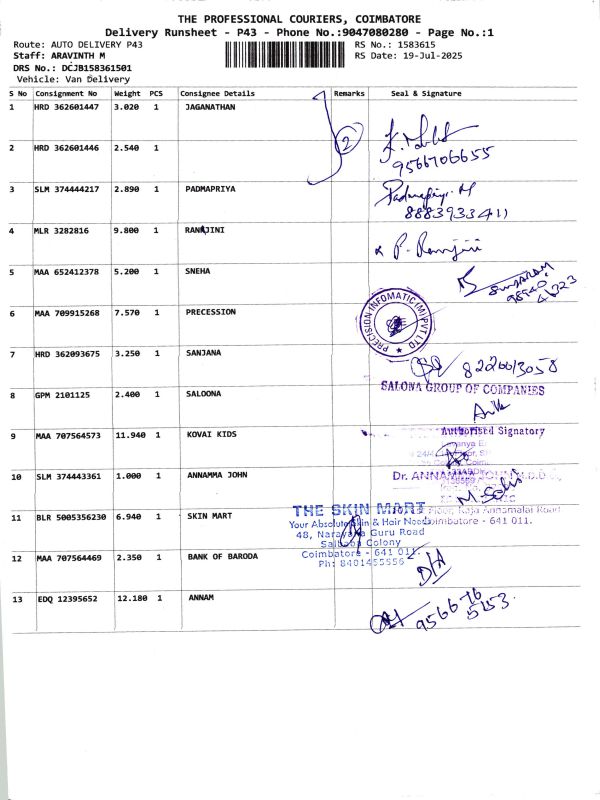 THE PROFESSIONAL COURIERS, COIMBATORE
Delivery Runsheet - P43 - Phone No.:9047080280 - Page No.:1
Route: AUTO DELIVERY P43 RS No.: 1583615
Staff: ARAVINTH M RS Date: 19-Jul-2025
DRS No.: DCJB158361501
Vehicle: Van Delivery
S No Consignment No Weight PCS Consignee Details Remarks Seal & Signature
1 HRD 362601447 3.020 1 JAGANATHAN
2
2 HRD 362601446 2.540 1
9566706655
3 SLM 374444217 2.890 1 PADMAPRIYA Padmapriya. M
8883933411
4 MLR 3282816 9.800 1 RANAJINI P. Ranjini
5 MAA 652412378 5.200 1 SNEHA
6 MAA 709915268 7.570 1 PRECESSION PRECISION INFOMATIC (M) PVT LTD
7 HRD 362093675 3.250 1 SANJANA 8220013058
8 GPM 2101125 2.400 1 SALOONA SALONA GROUP OF COMPANIES
9 MAA 707564573 11.940 1 KOVAI KIDS Authorised Signatory
10 SLM 374443361 1.000 1 ANNAMMA JOHN Dr.
11 BLR 5005356230 6.940 1 SKIN MART THE SKIN MART
Your Absolute Skin & Hair Needs Coimbatore - 641 011.
48, Narayana Guru Road
Saibaba Colony
Coimbatore - 641 011.
Ph: 8401455556
12 MAA 707564469 2.350 1 BANK OF BARODA
13 EDQ 12395652 12.180 1 ANNAM 9566676
5153